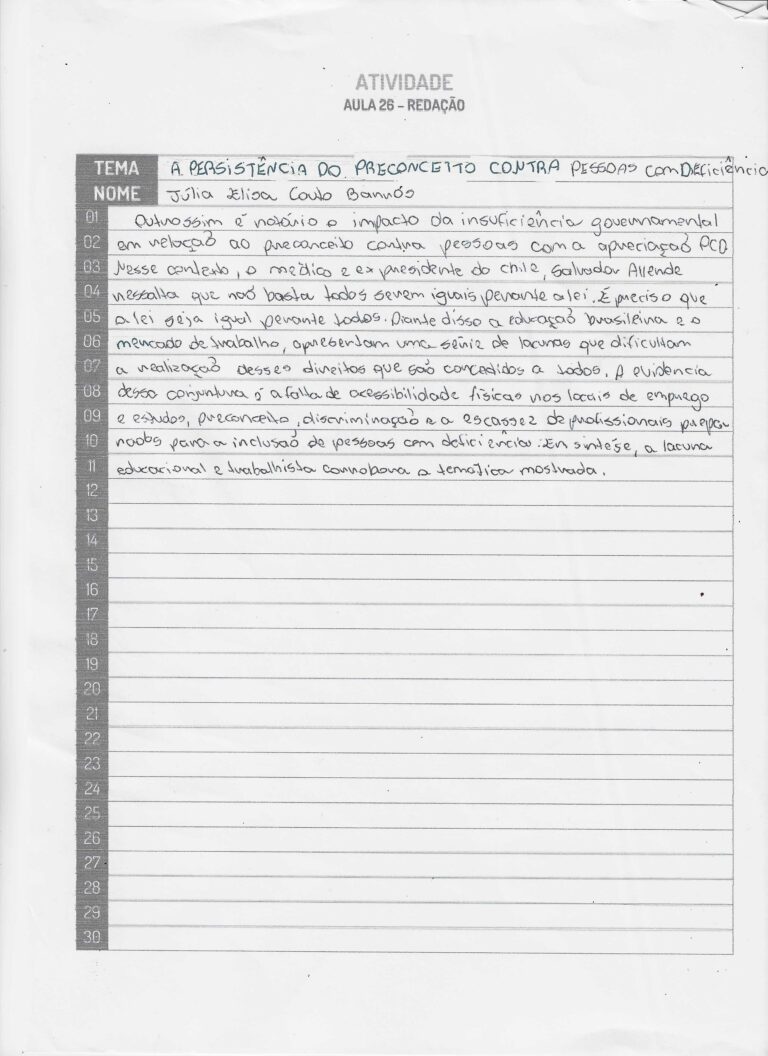 ATIVIDADE
AULA 26 – REDAÇÃO
TEMA A PERSISTÊNCIA DO PRECONCEITO CONTRA PESSOAS com DEficiência
NOME Júlia Elisa Couto Barros
01 Outrossim é notário o impacto da insuficiência governamental
02 em relação ao preconceito contra pessoas com a apreciação PCD
03 Nesse contexto, o médico e ex presidente do chile, Salvador Allende
04 ressalta que naõ basta todos serem iguais perante a lei. É preciso que
05 a lei seja igual perante todos. Diante disso a educaçaõ brasileira e o
06 mercado de trabalho, apresentam uma série de lacunas que dificultam
07 a realizaçaõ desses direitos que saõ concedidos a todos. A evidencia
08 dessa conjuntura é a falta de acessibilidade físicas nos locais de emprego
09 e estudos, preconceito, discriminaçaõ e a escassez de profissionais prepa-
10 raobs para a inclusaõ de pessoas com deficiência. En sintése, a lacuna
11 educacional e trabalhista corrobora a temática mostrada.
12
13
14
15
16
17
18
19
20
21
22
23
24
25
26
27
28
29
30